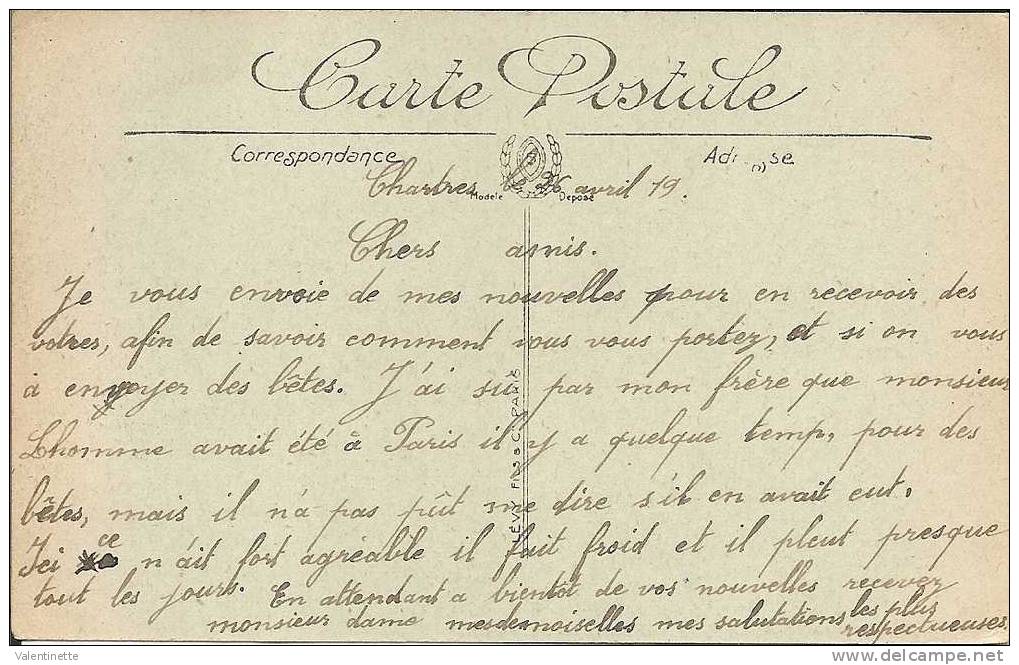 Carte Postale
Correspondance
Adresse
Chartres le 26 avril 19.
Modèle Déposé
Chers amis.
Je vous envoie de mes nouvelles pour en recevoir des
votres, afin de savoir comment vous vous portez, et si on vous
à envoyer des bêtes. J'ai su par mon frère que monsieur
Lhomme avait été à Paris il y a quelque temp, pour des
bêtes, mais il n'a pas pût me dire s'il en avait eut.
Ici ce n'ait fort agréable il fait froid et il pleut presque
tout les jours. En attendant a bientôt de vos nouvelles recevez
monsieur dame mesdemoiselles mes salutations les plus
respectueuses
LÉVY FILS & C. PARIS
Valentinette
http://www.delcampe.net